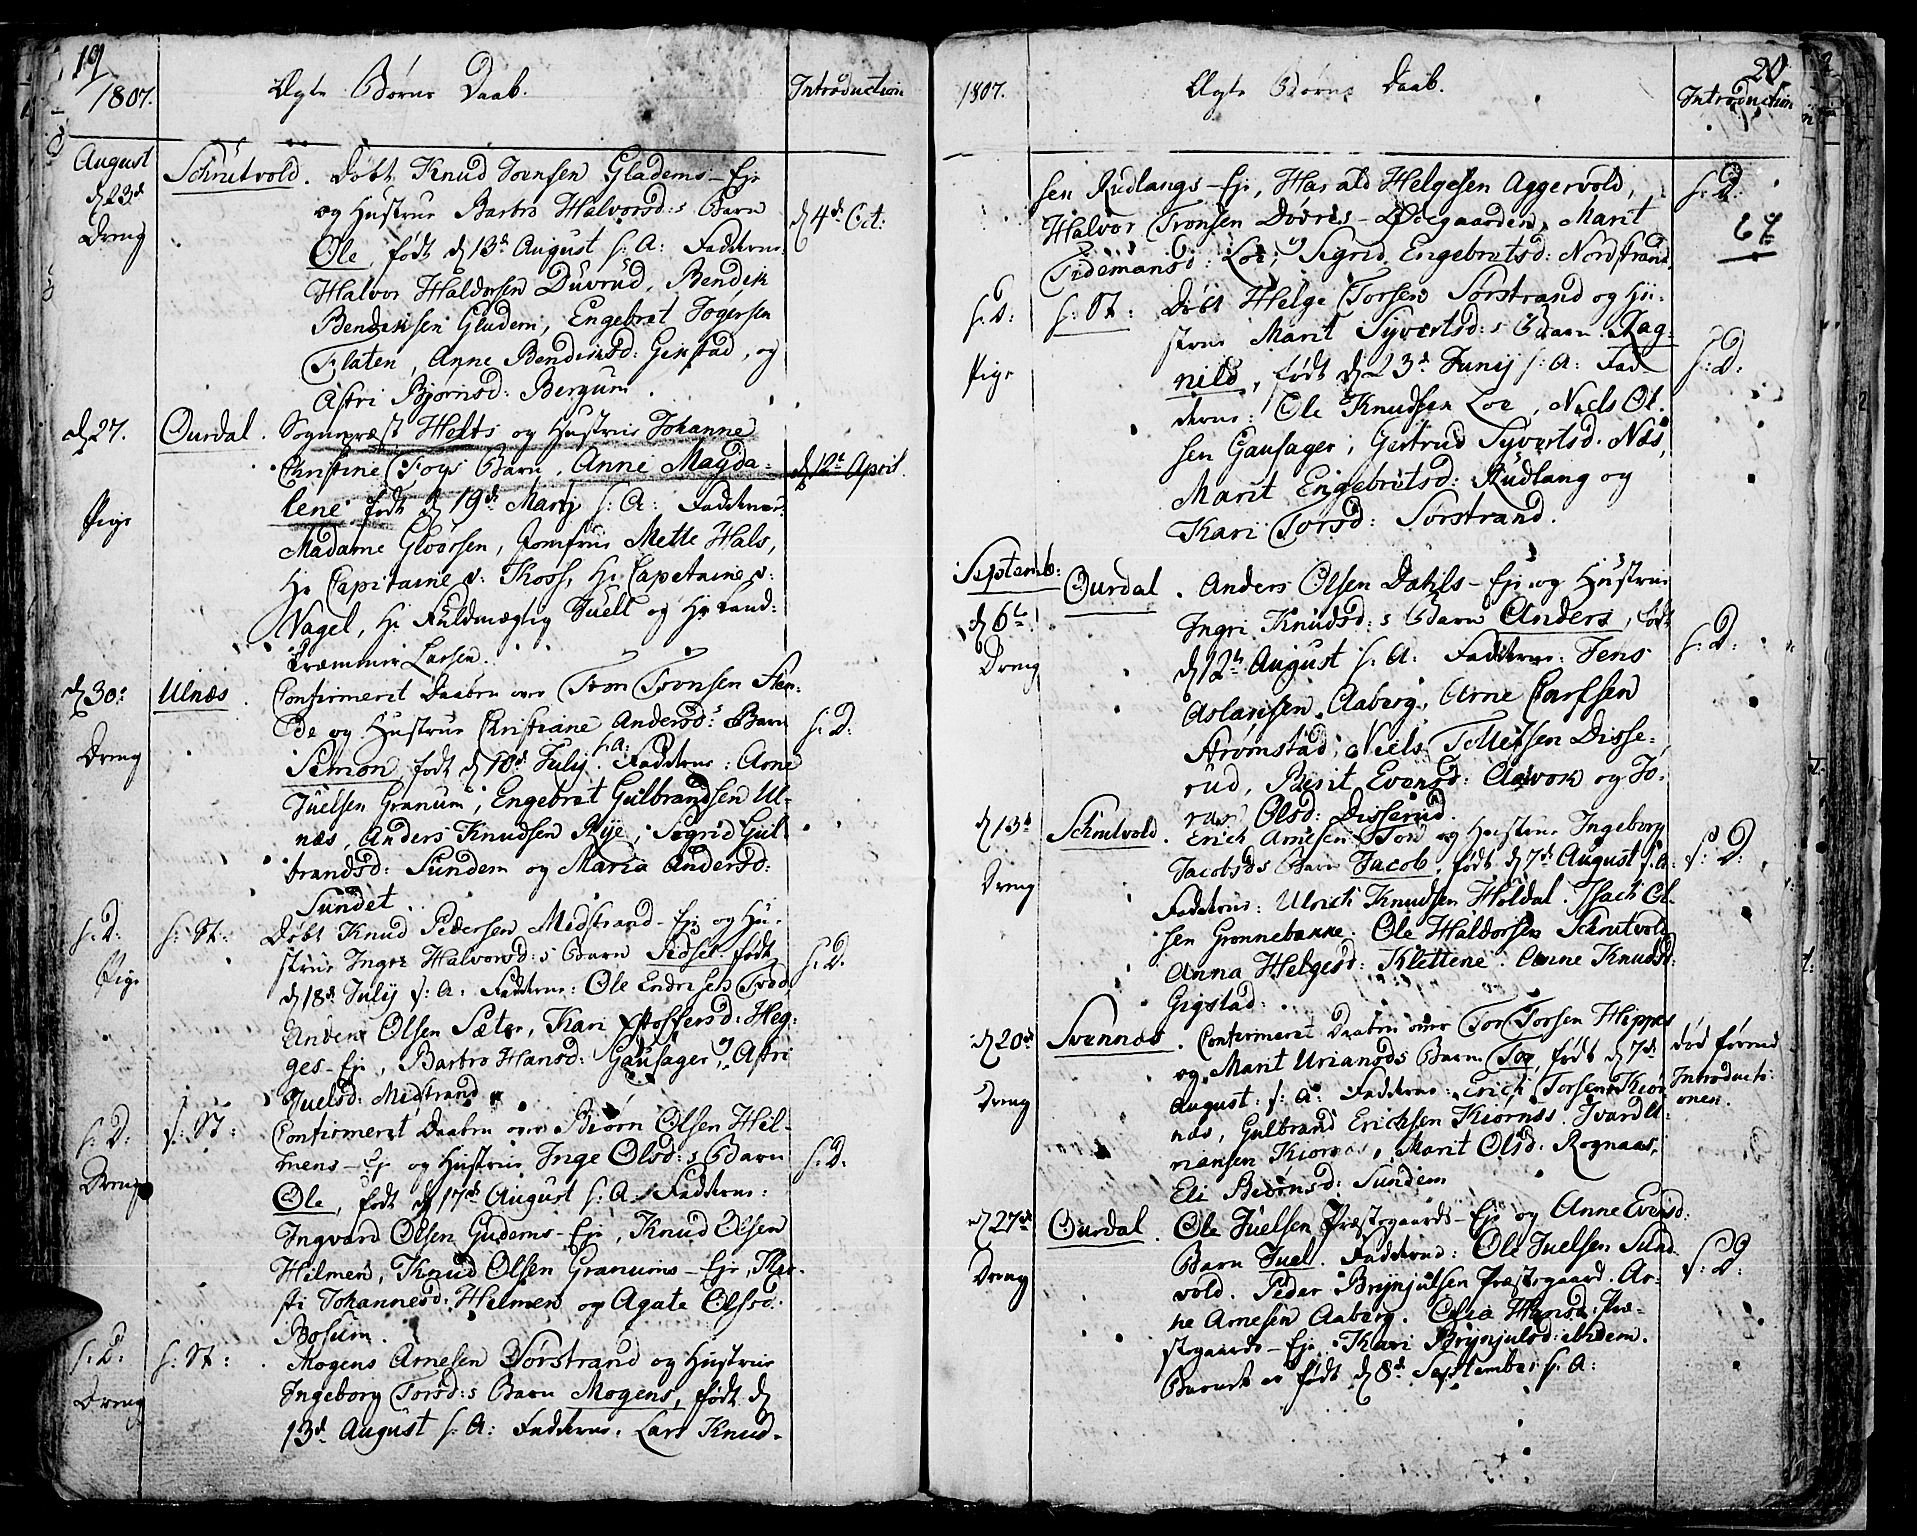 19
1807.
Ægte Børns Daab.
Introduction
August
d 23de
Dreng
Schrutvold. Døbt Knud Joensen Gladems-Eje
og Hustrue Barbro Halvorsd:s Barn
Ole, født d 13de August s: A: Fadderne
Halvor Haldorsen Duvrud, Bendik
Bendiksen Gladem, Engebret Jøgersen
Flaten, Anne Bendiksd: Gigstad, og
Astri Bjørnsd: Bergum.
d 4de Oct:
d 27.
Pige
Ourdal. Sognepræst Helts og Hustrue Johanne
Christine Foys Barn, Anne Magda-
lene født d 19de Martj s: A: Fadderne
Madame Gloersen, Jomfrue Mette Hals,
Hr Capitaine v: Koss, Hr Capetaine v:
Nagel, Hr Fuldmægtig Juell og Hr Land-
Kræmmer Larsen.
d 12te April.
d 30:
Dreng
Ulnæs. Confirmeret Daaben over Tron Tronsen
og Hustrue Christiane Andersd:s Barn
Simon, født d 18de Julij s: A: Fadderne: Arne
Juelsen Granum, Engebret Gulbrandsen Ul-
næs, Anders Knudsen Rye, Sigrid Gul-
brandsd: Sundem og Maria Andersd:
Sundet.
s: D:
s: D:
Pige
s: St: Døbt Knud Pedersen Midstrand-Eje og Hu-
strue Ingri Halvorsd:s Barn Sidsel født
d 18de Julij s: A: Fadderne: Ole Endrisen
Anders Olsen Sæter, Kari Stoffersd: Heg-
ges-Eje, Barbro Hansd: Gausager og Astri
Juelsd: Midstrand
s: D:
s: D:
Dreng
s: St: Confirmeret Daaben over Biørn Olsen Hil-
mens-Eje og Hustrue Inge Olsd:s Barn
Ole, født d 17de August s: A: Fadderne:
Ingvard Olsen Gudems-Eje, Knud Olsen
Hilmen, Knud Olsen Granums-Eje, Mar-
ti Johannesd: Hilmen og Agate Olsd:
Bosum.
s: D:
s: D:
Dreng
s: St: Mogens Arnesen Sørstrand og Hustrue
Ingeborg Torsd:s Barn Mogens, født d
13de August s: A: Fadderne: Lars Knud-
20
1807.
Ægte Børns Daab.
Introduction
sen Rudlangs-Eje, Harald Helgesen Aggervold,
Halvor Tronsen Døvres-Ødegaarden, Marit
Tidemansd: Loe, og Sigrid Engebretsd: Nordstrand.
s: D:
67
s: D:
Pige
s: St: Døbt Helge Torsen Sørstrand og Hu-
strue Marit Syvertsd:s Barn Rag-
nild, født d 23de Junij s: A: Fad-
derne: Ole Knudsen Loe, Niels Ol-
sen Gausager, Gertrud Syvertsd. Næs,
Marit Engebretsd: Rudlang og
Kari Torsd: Sørstrand.
s: D:
Septemb:
d 6te
Dreng
Ourdal. Anders Olsen Dahls-Eje og Hustrue
Ingri Knudsd:s Barn Anders, født
d 12te August s: A: Fadderne: Jens
Aslaksen Aaberg, Arne Carlsen
Strømstad, Niels Tollefsen Disse-
rud, Berit Evensd: Aavok og Jo-
ran Olsd: Disserud.
s: D:
d 13de
Dreng
Schrutvold. Erich Arnesen Ton og Hustrue Ingeborg
Jacobsds Barn Jacob, født d 7de August s: A:
Fadderne: Ulrich Knudsen Holdal. Isach Ol-
sen Grønnebakke. Ole Haldorsen Schrutvold
Anna Helgesd: Klettene. Anne Knudsd:
Gigstad.
s: D:
d 20de
Dreng
Svennæs. Confirmeret Daaben over Tor Torsen Hippes
og Marit Uriansds Barn Tor, født d 7de
August: s: A: Fadderne: Erich Torsen Kiør-
næs, Gulbrand Erichsen Kiørnæs. Ivar U-
riansen Kiørnæs, Marit Olsd: Rognaas,
Eli Biørnsd: Sundem
død førend
Introducti-
onen.
d 27de
Dreng
Ourdal. Ole Juelsen Præstegaards-Eje og Anne Evensd:
Barn Juel. Fadderne: Ole Juelsen Sund-
vold. Peder Brynjulsen Præstegaard. Ar-
ne Arnesen Aaberg. Olea Hansd: Præ-
stegaards-Eje. Kari Brynjulsd: ibidem.
Barnet er født d 8de September s: A:
s: D: